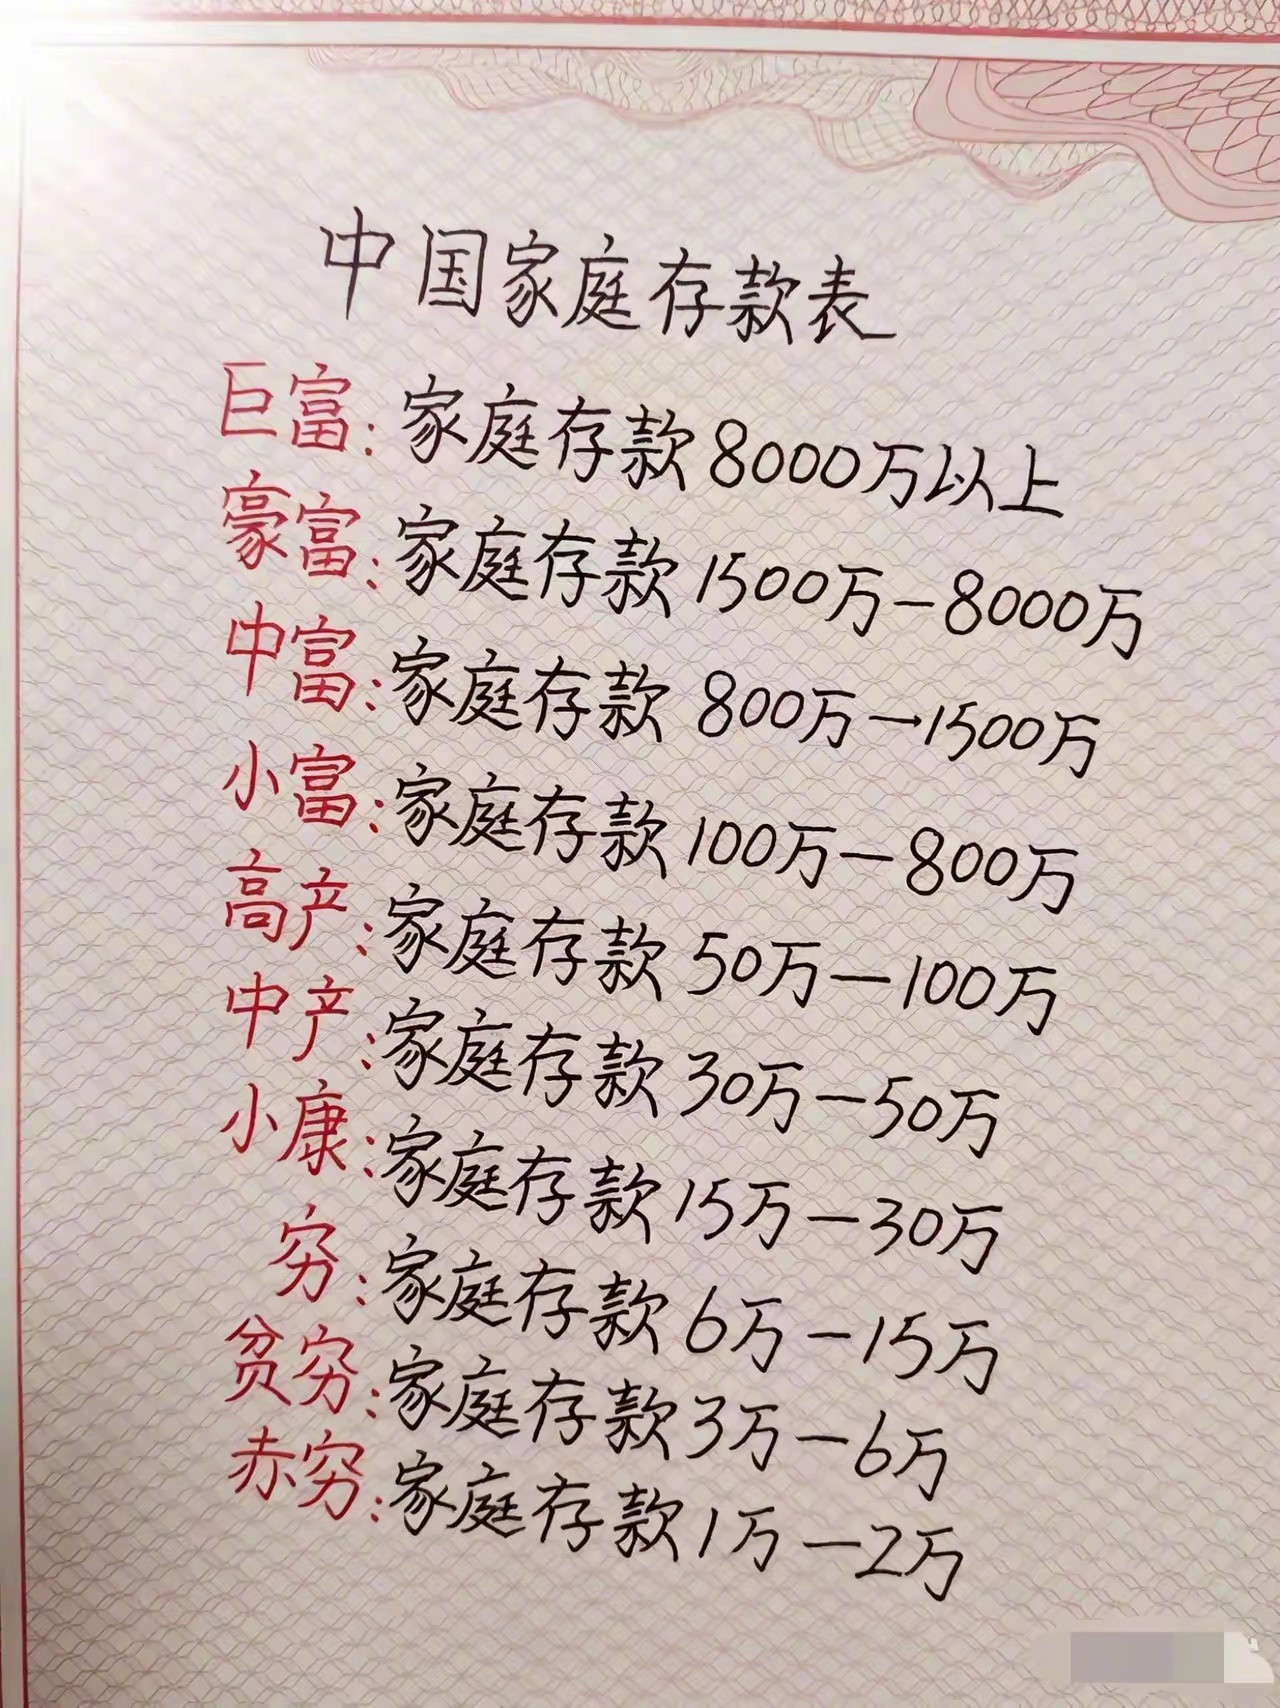 中国家庭存款表
巨富:家庭存款8000万以上
豪富:家庭存款1500万-8000万
中富:家庭存款800万-1500万
小富:家庭存款100万-800万
高产:家庭存款50万-100万
中产:家庭存款30万-50万
小康:家庭存款15万-30万
穷:家庭存款6万-15万
贫穷:家庭存款3万-6万
赤穷:家庭存款1万-2万